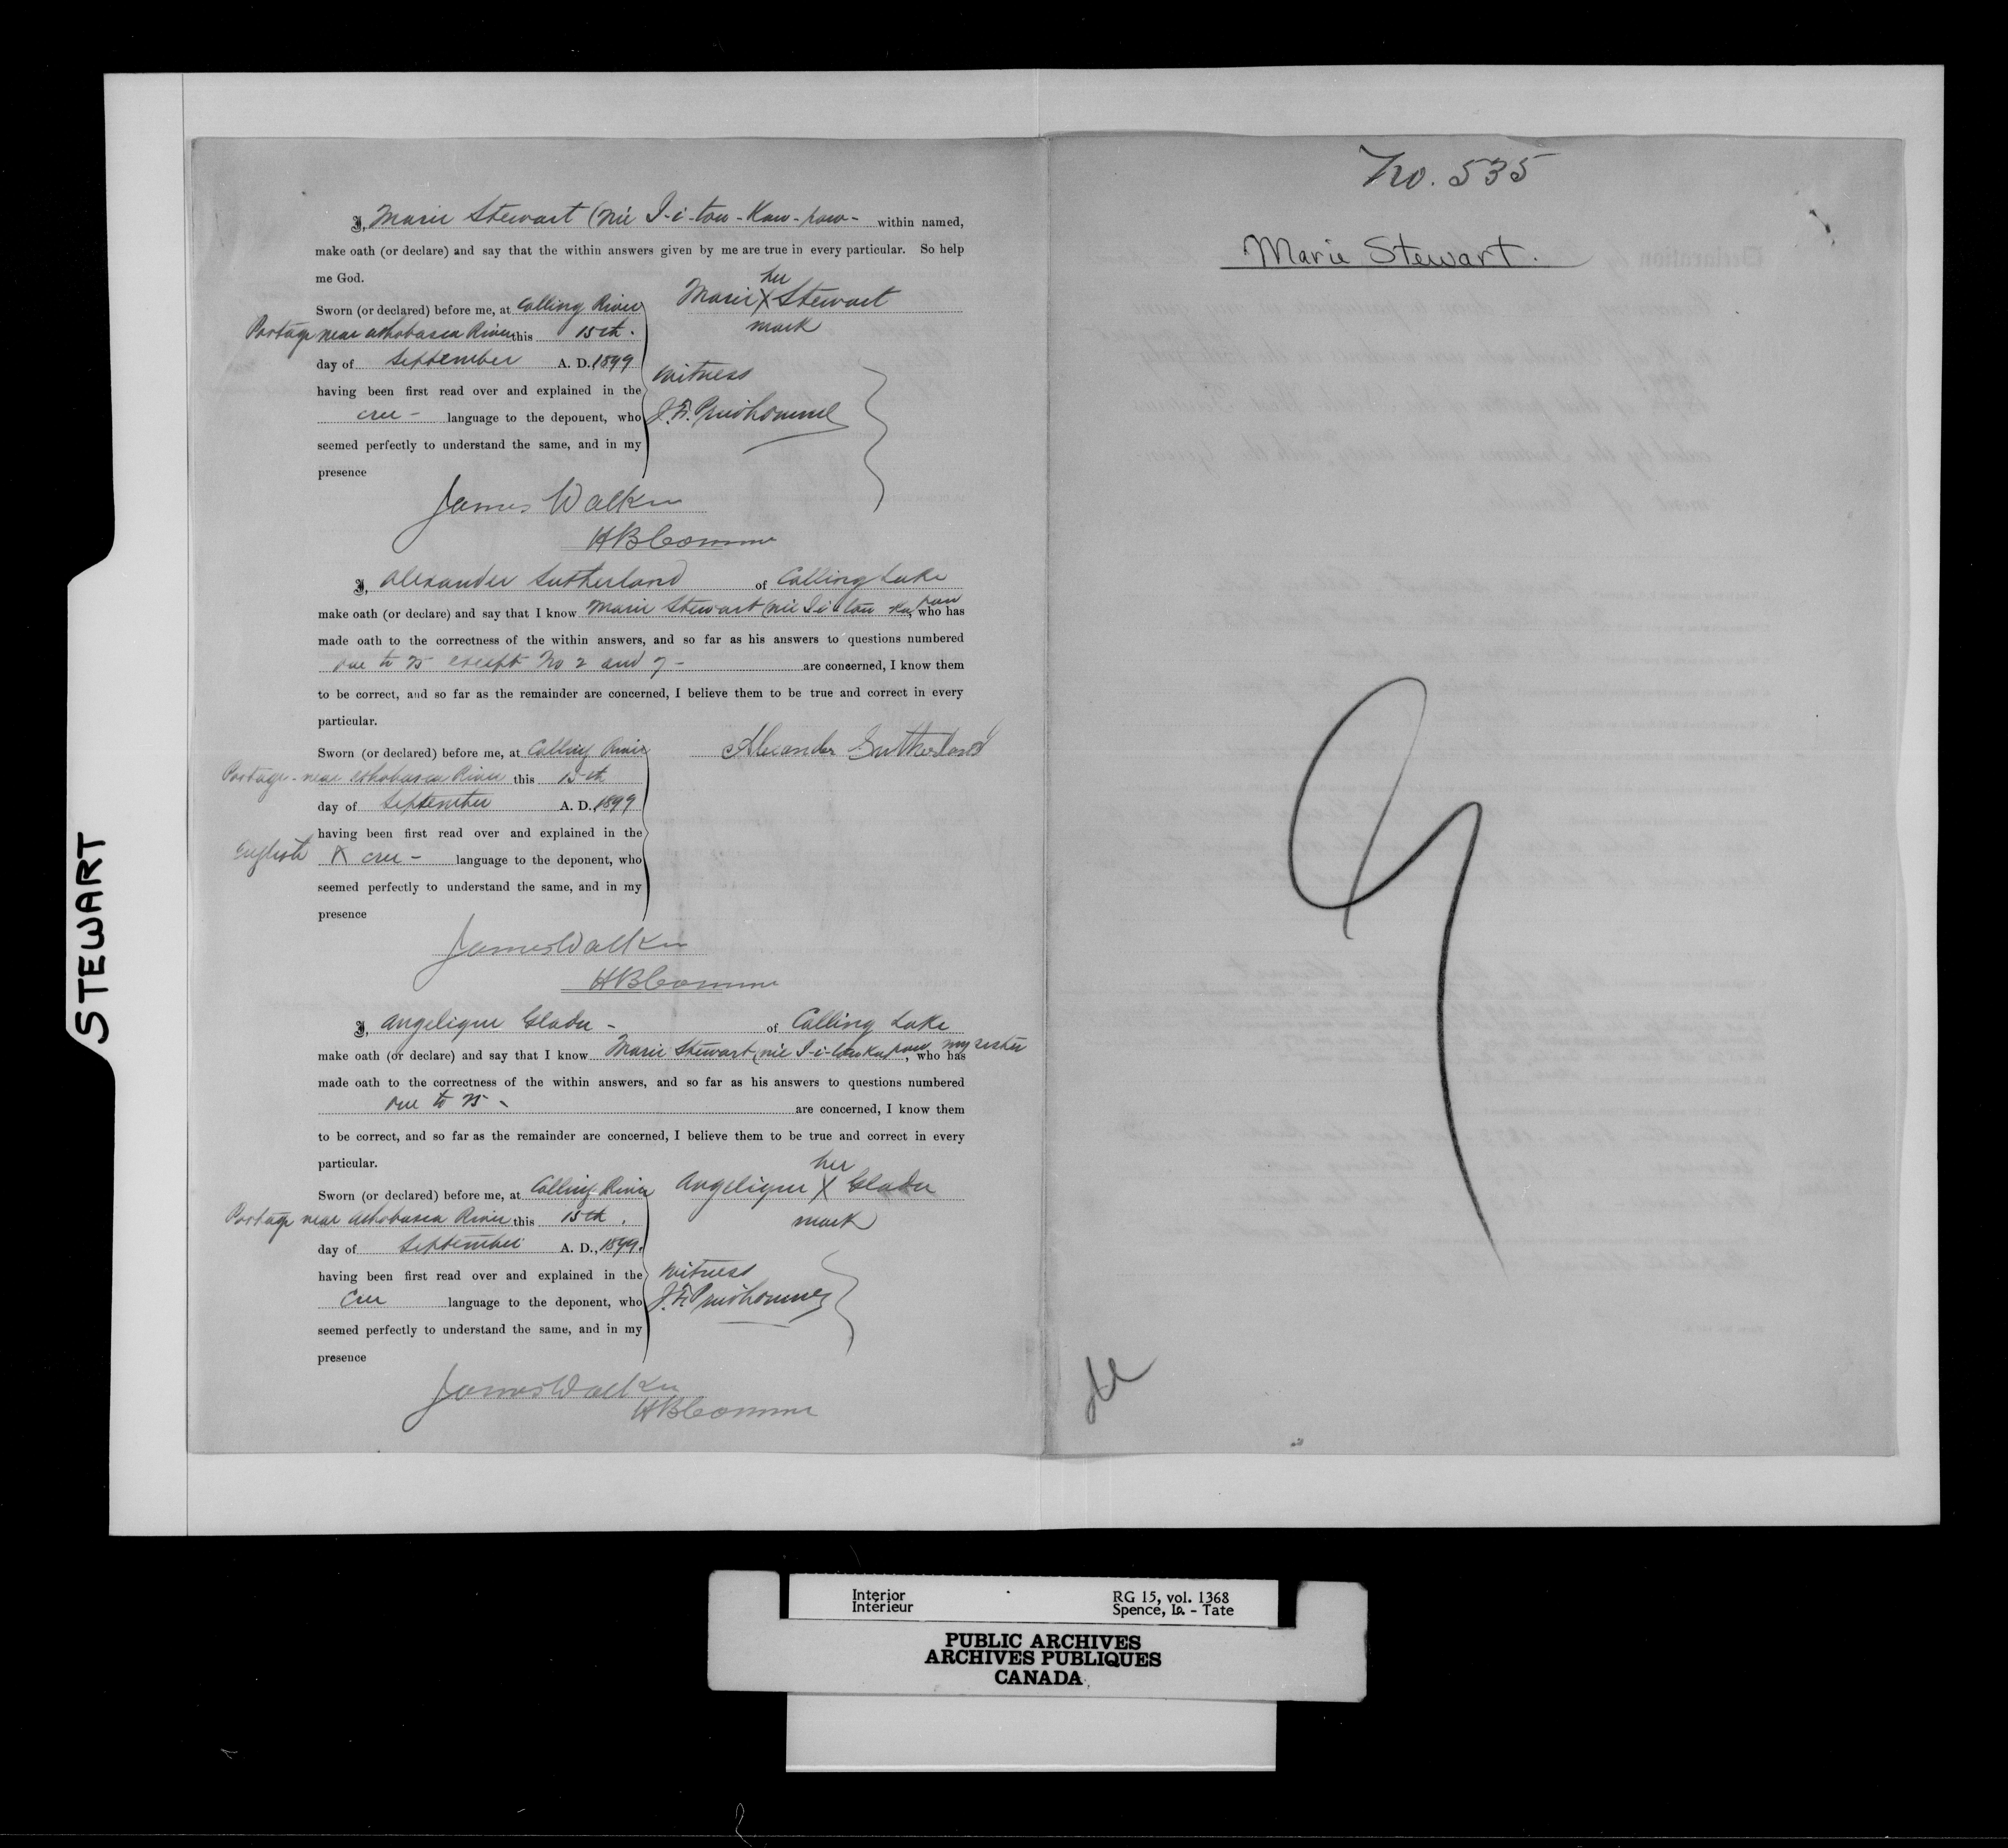 I, Marie Stewart (née I-i-tow-Kaw-paw- within named,
make oath (or declare) and say that the within answers given by me are true in every particular. So help
me God.
her
Marie X Stewart
mark
Sworn (or declared) before me, at Calling River
Portage near Athabasca River this 15th.
day of September A. D. 1899
having been first read over and explained in the
cree - language to the deponent, who
seemed perfectly to understand the same, and in my
presence
Witness
J. F. Prudhomme
James Walker
HB Commr
I, Alexander Sutherland of Calling Lake
make oath (or declare) and say that I know Marie Stewart (née I-i-tow Ka paw, who has
made oath to the correctness of the within answers, and so far as his answers to questions numbered
one to 15 except No 2 and 7 - are concerned, I know them
to be correct, and so far as the remainder are concerned, I believe them to be true and correct in every
particular.
Sworn (or declared) before me, at Calling River
Portage - near Athabasca River this 15th
day of September A. D. 1899
having been first read over and explained in the
English X cree - language to the deponent, who
seemed perfectly to understand the same, and in my
presence
Alexander Sutherland
James Walker
HB Commr
I, Angelique Gladu - of Calling Lake
make oath (or declare) and say that I know Marie Stewart (née I-i-tow Ka paw my sister, who has
made oath to the correctness of the within answers, and so far as his answers to questions numbered
one to 15 - are concerned, I know them
to be correct, and so far as the remainder are concerned, I believe them to be true and correct in every
particular.
her
Angelique X Gladu
mark
Sworn (or declared) before me, at Calling River
Portage near Athabasca River this 15th.
day of September A. D., 1899.
having been first read over and explained in the
Cree language to the deponent, who
seemed perfectly to understand the same, and in my
presence
Witness
J. F. Prudhomme
James Walker
HB Commr
No. 535
Marie Stewart.
STEWART
Interior
Intérieur
RG 15, vol. 1368
Spence, Ia. - Tate
PUBLIC ARCHIVES
ARCHIVES PUBLIQUES
CANADA